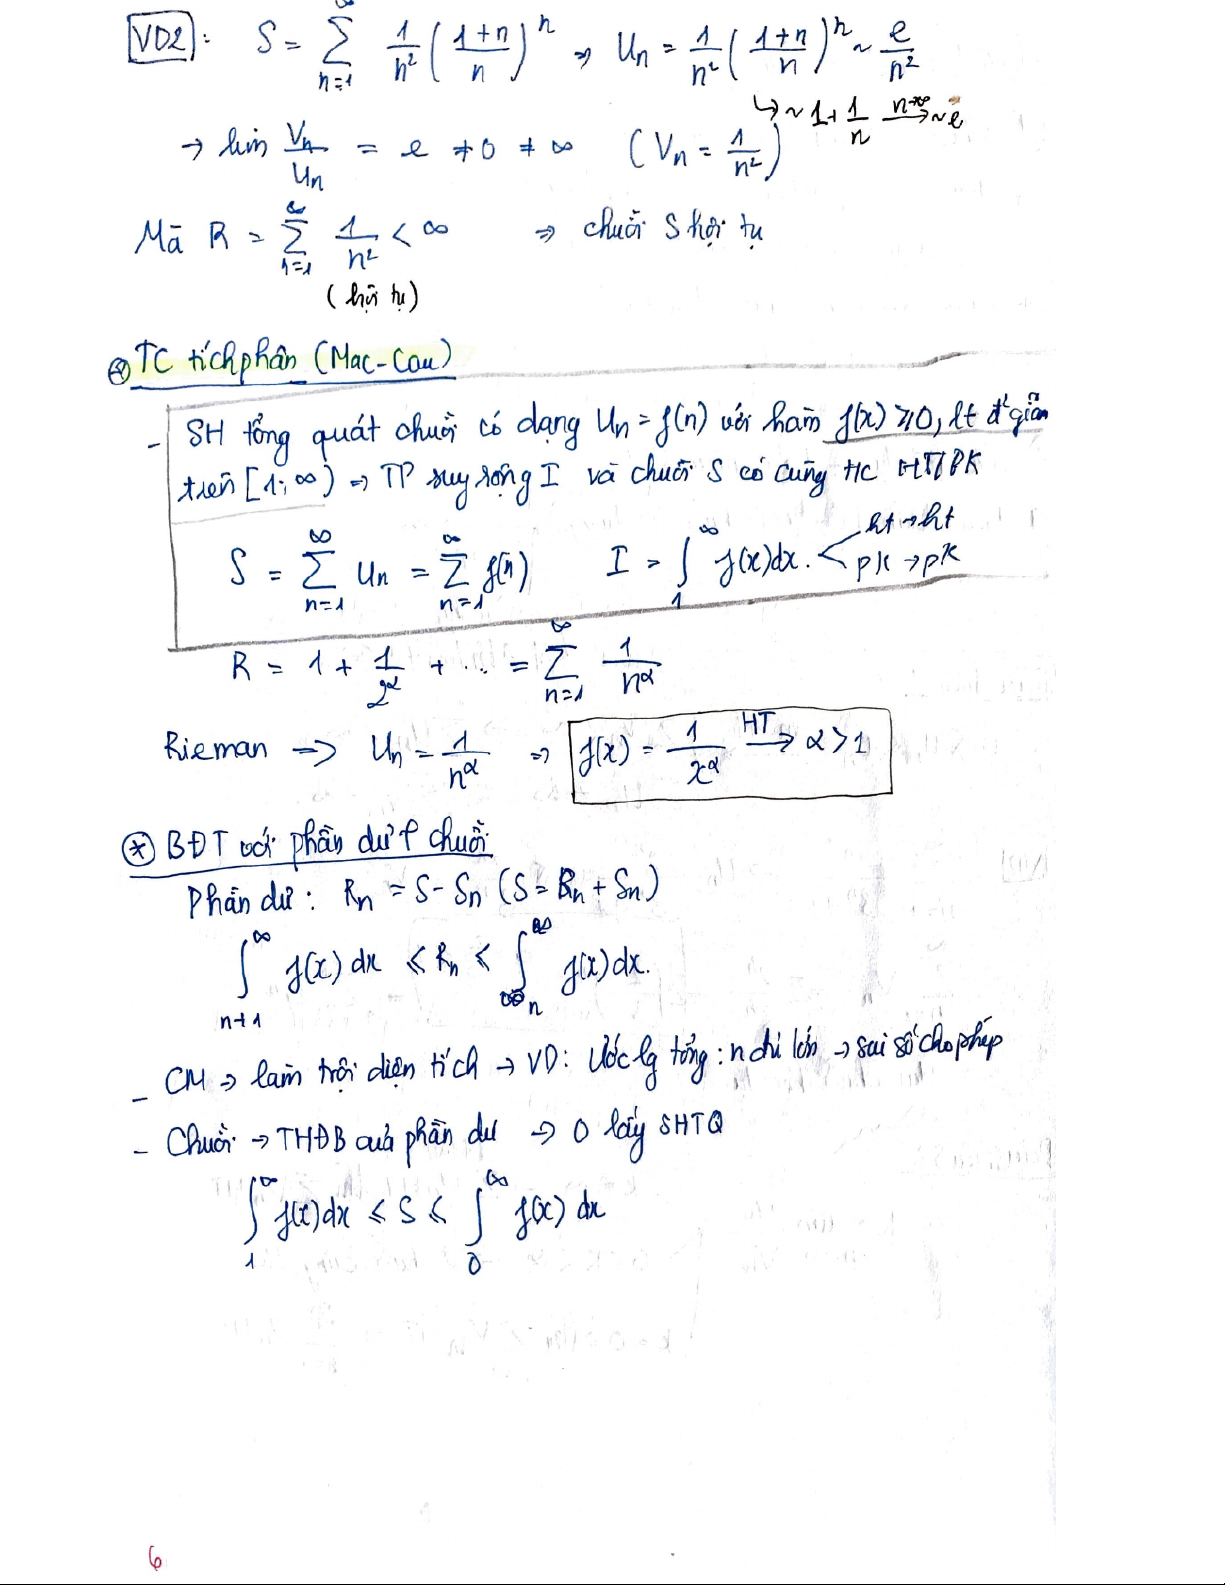 VD2: S = ∑_{n=1}^{∞} 1/n² ((1+n)/n)^n ⇒ Un = 1/n² ((1+n)/n)^n ~ e/n²
↳ ~ 1 + 1/n —n→∞→ ~ e
→ lim Vn/Un = e ≠ 0 ≠ ∞ (Vn = 1/n²)
Mà R = ∑_{n=1}^{∞} 1/n² < ∞ ⇒ chuỗi S hội tụ
(hội tụ)
⊛ TC tích phân (Mac-Cau)
- SH tổng quát chuỗi có dạng Un = f(n) với hàm f(x) ≥ 0, lt đ² giản
trên [1; ∞) ⇒ TP suy rộng I và chuỗi S có cùng t/c HT/PK
S = ∑_{n=1}^{∞} Un = ∑_{n=1}^{∞} f(n) I = ∫_1^∞ f(x)dx. < ht → ht
pk → pk
R = 1 + 1/2^α + ... = ∑_{n=1}^{∞} 1/n^α
Rieman ⇒ Un = 1/n^α ⇒ f(x) = 1/x^α —HT→ α > 1
⊛ BĐT với phần dư f chuỗi
Phần dư: Rn = S - Sn (S = Rn + Sn)
∫_{n+1}^∞ f(x) dx ≤ Rn ≤ ∫_n^∞ f(x) dx.
- CM ⇒ làm trội diện tích → VD: Ước lg tổng: n chỉ lớn → sai số cho phép
- Chuỗi → THĐB của phần dư ⇒ 0 lấy SHTQ
∫_1^∞ f(x)dx ≤ S ≤ ∫_0^∞ f(x) dx
6